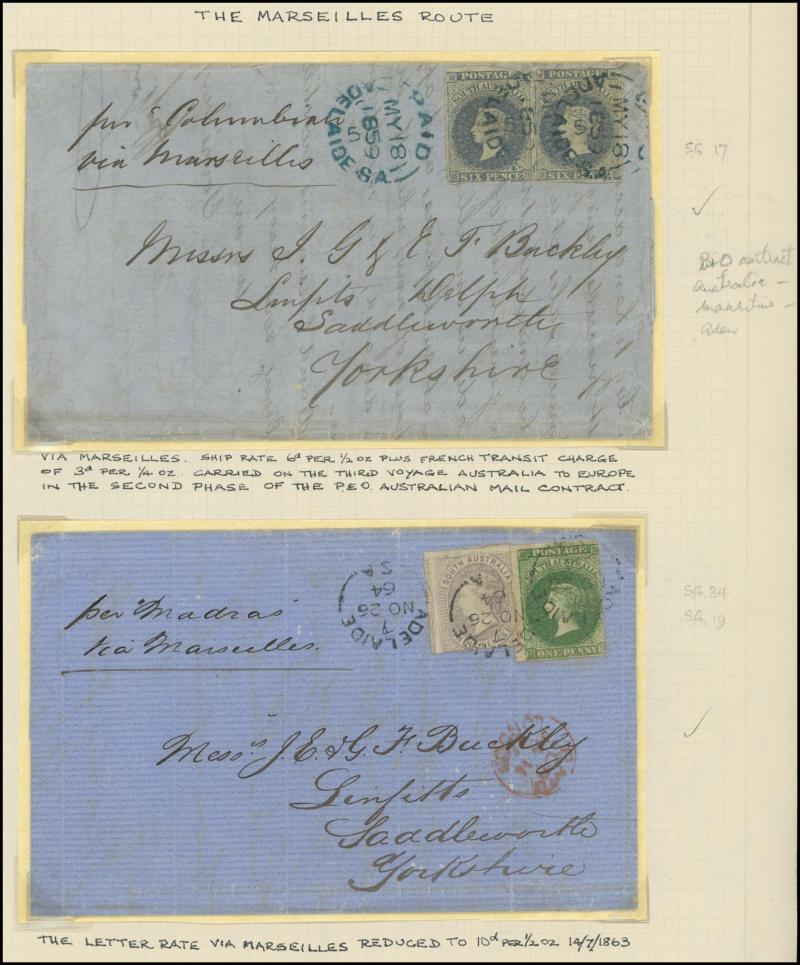 THE MARSEILLES ROUTE
per "Columbian"
via Marseilles
PAID
MY 18
1859
ADELAIDE S.A.
POSTAGE POSTAGE
SOUTH AUSTRALIA SOUTH AUSTRALIA
SIX PENCE SIX PENCE
MY 18
1859
SG 17
✓
P&O contract
Australia –
Mauritius –
Aden
Messrs J. G & E. F Buckley
Linfits Delph
Saddleworth
Yorkshire
VIA MARSEILLES. SHIP RATE 6d PER 1/2 OZ PLUS FRENCH TRANSIT CHARGE
OF 3d PER 1/4 OZ. CARRIED ON THE THIRD VOYAGE AUSTRALIA TO EUROPE
IN THE SECOND PHASE OF THE P&O. AUSTRALIAN MAIL CONTRACT.
per "Madras"
via Marseilles.
ADELAIDE
7
NO 26
64
SA
SOUTH AUSTRALIA
POSTAGE
SOUTH AUSTRALIA
ONE PENNY
NO 26
64
SG. 34
SG. 19
✓
Messrs J. E. & G. F. Buckley
Linfitts
Saddleworth
Yorkshire
THE LETTER RATE VIA MARSEILLES REDUCED TO 10d PER 1/2 OZ 14/7/1863